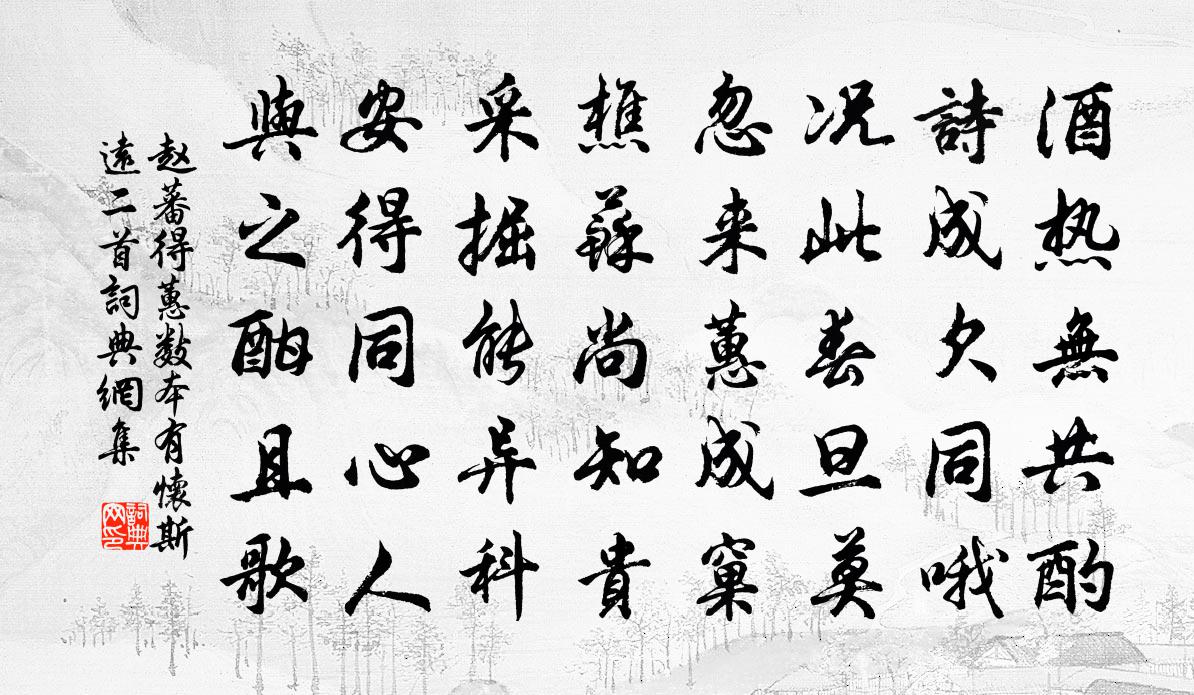 酒热無共酌
詩成欠同哦
况此春旦莫
忽来蕙成窠
樵蘇尚知貴
采掘能异科
安得同心人
與之酣且歌
赵蕃得蕙数本有懷斯
遠二首詞典網集
詞典網印